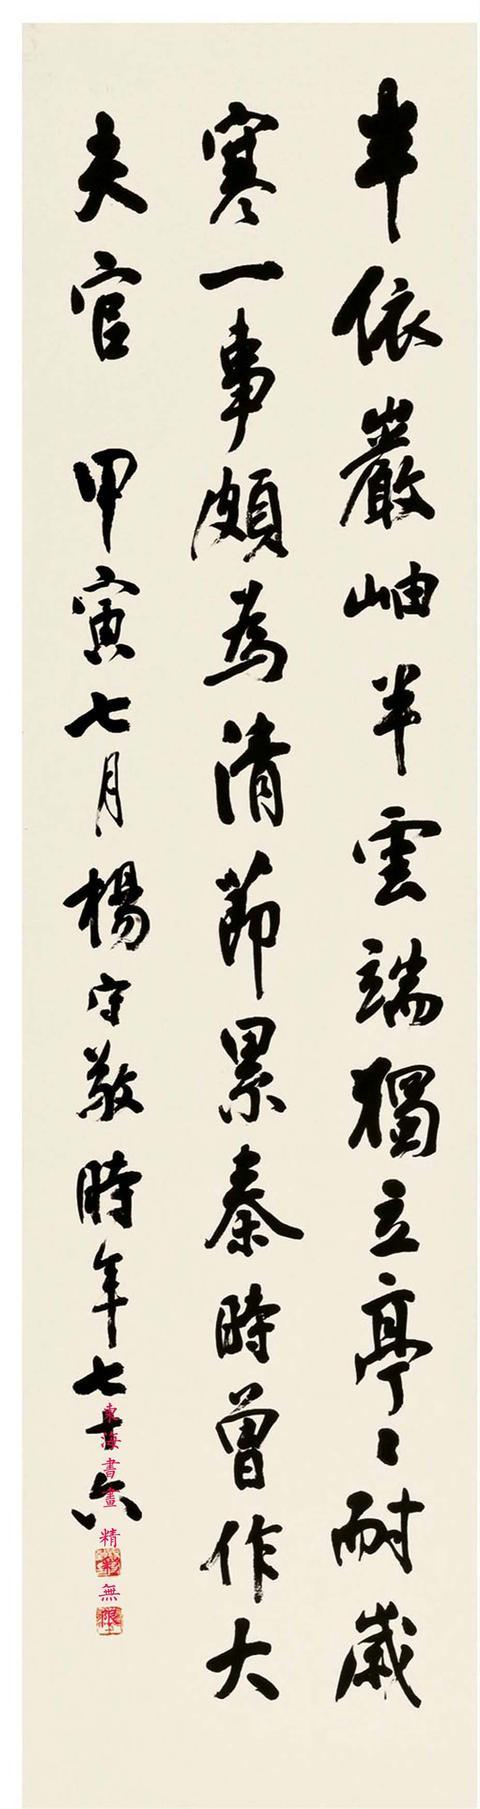 半依巖岫半雲端獨立亭〻耐歲
寒一事頗為清節累秦時曾作大
夫官 甲寅七月楊守敬時年七十六
東海書畫 精彩無限